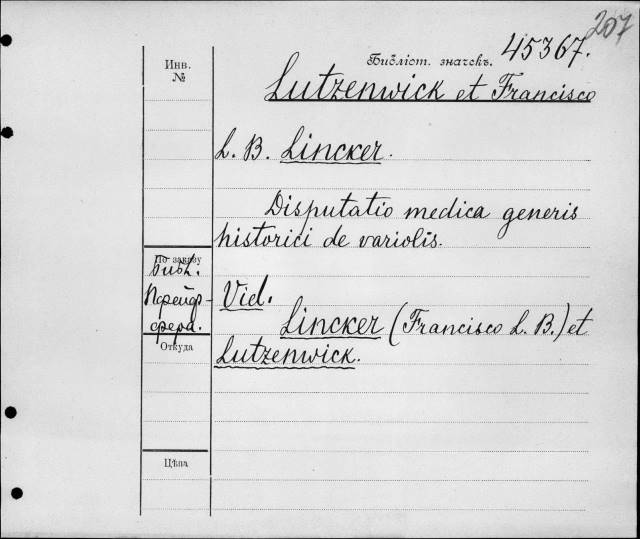 207
Инв.
№
Библіот. значекъ. 45367.
Lutzenwick et Francisco
L. B. Lincker.
Disputatio medica generis
historici de variolis.
По заказу
Библ.
Прейф-
фера.
Vid.
Lincker (Francisco L. B.) et
Lutzenwick.
Откуда
Цѣна